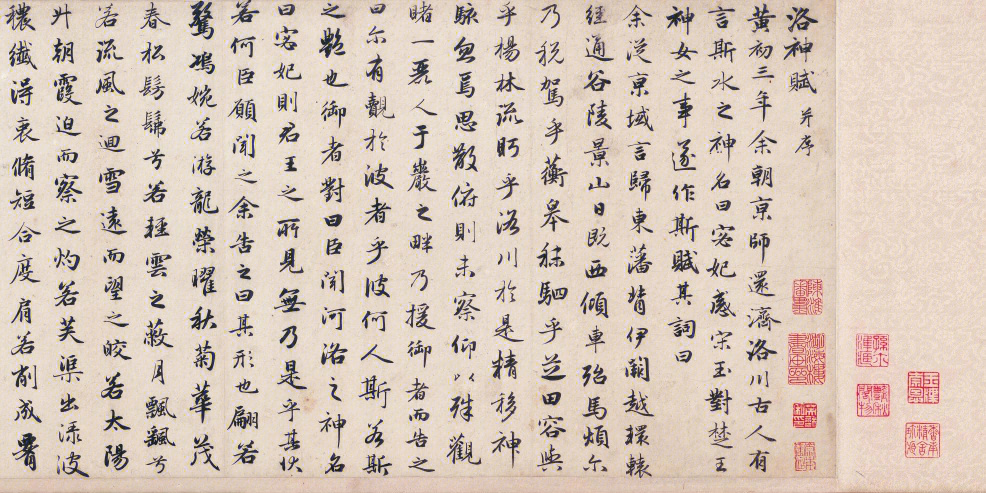 洛神賦 并序
黃初三年余朝京師還濟洛川古人有
言斯水之神名曰宓妃感宋玉對楚王
神女之事遂作斯賦其詞曰
余從京域言歸東藩背伊闕越轘轅
經通谷陵景山日既西傾車殆馬煩尔
乃稅駕乎蘅皋秣駟乎芝田容與
乎楊林流眄乎洛川於是精移神
駭忽焉思散俯則未察仰以殊觀
睹一麗人于巖之畔乃援御者而告之
曰尔有覿於波者乎彼何人斯若斯
之艷也御者對曰臣聞河洛之神名
曰宓妃則君王之所見無乃是乎其狀
若何臣願聞之余告之曰其形也翩若
驚鴻婉若游龍榮曜秋菊華茂
春松髣髴兮若輕雲之蔽月飄飄兮
若流風之迴雪遠而望之皎若太陽
升朝霞迫而察之灼若芙渠出淥波
穠纖得衷脩短合度肩若削成腰